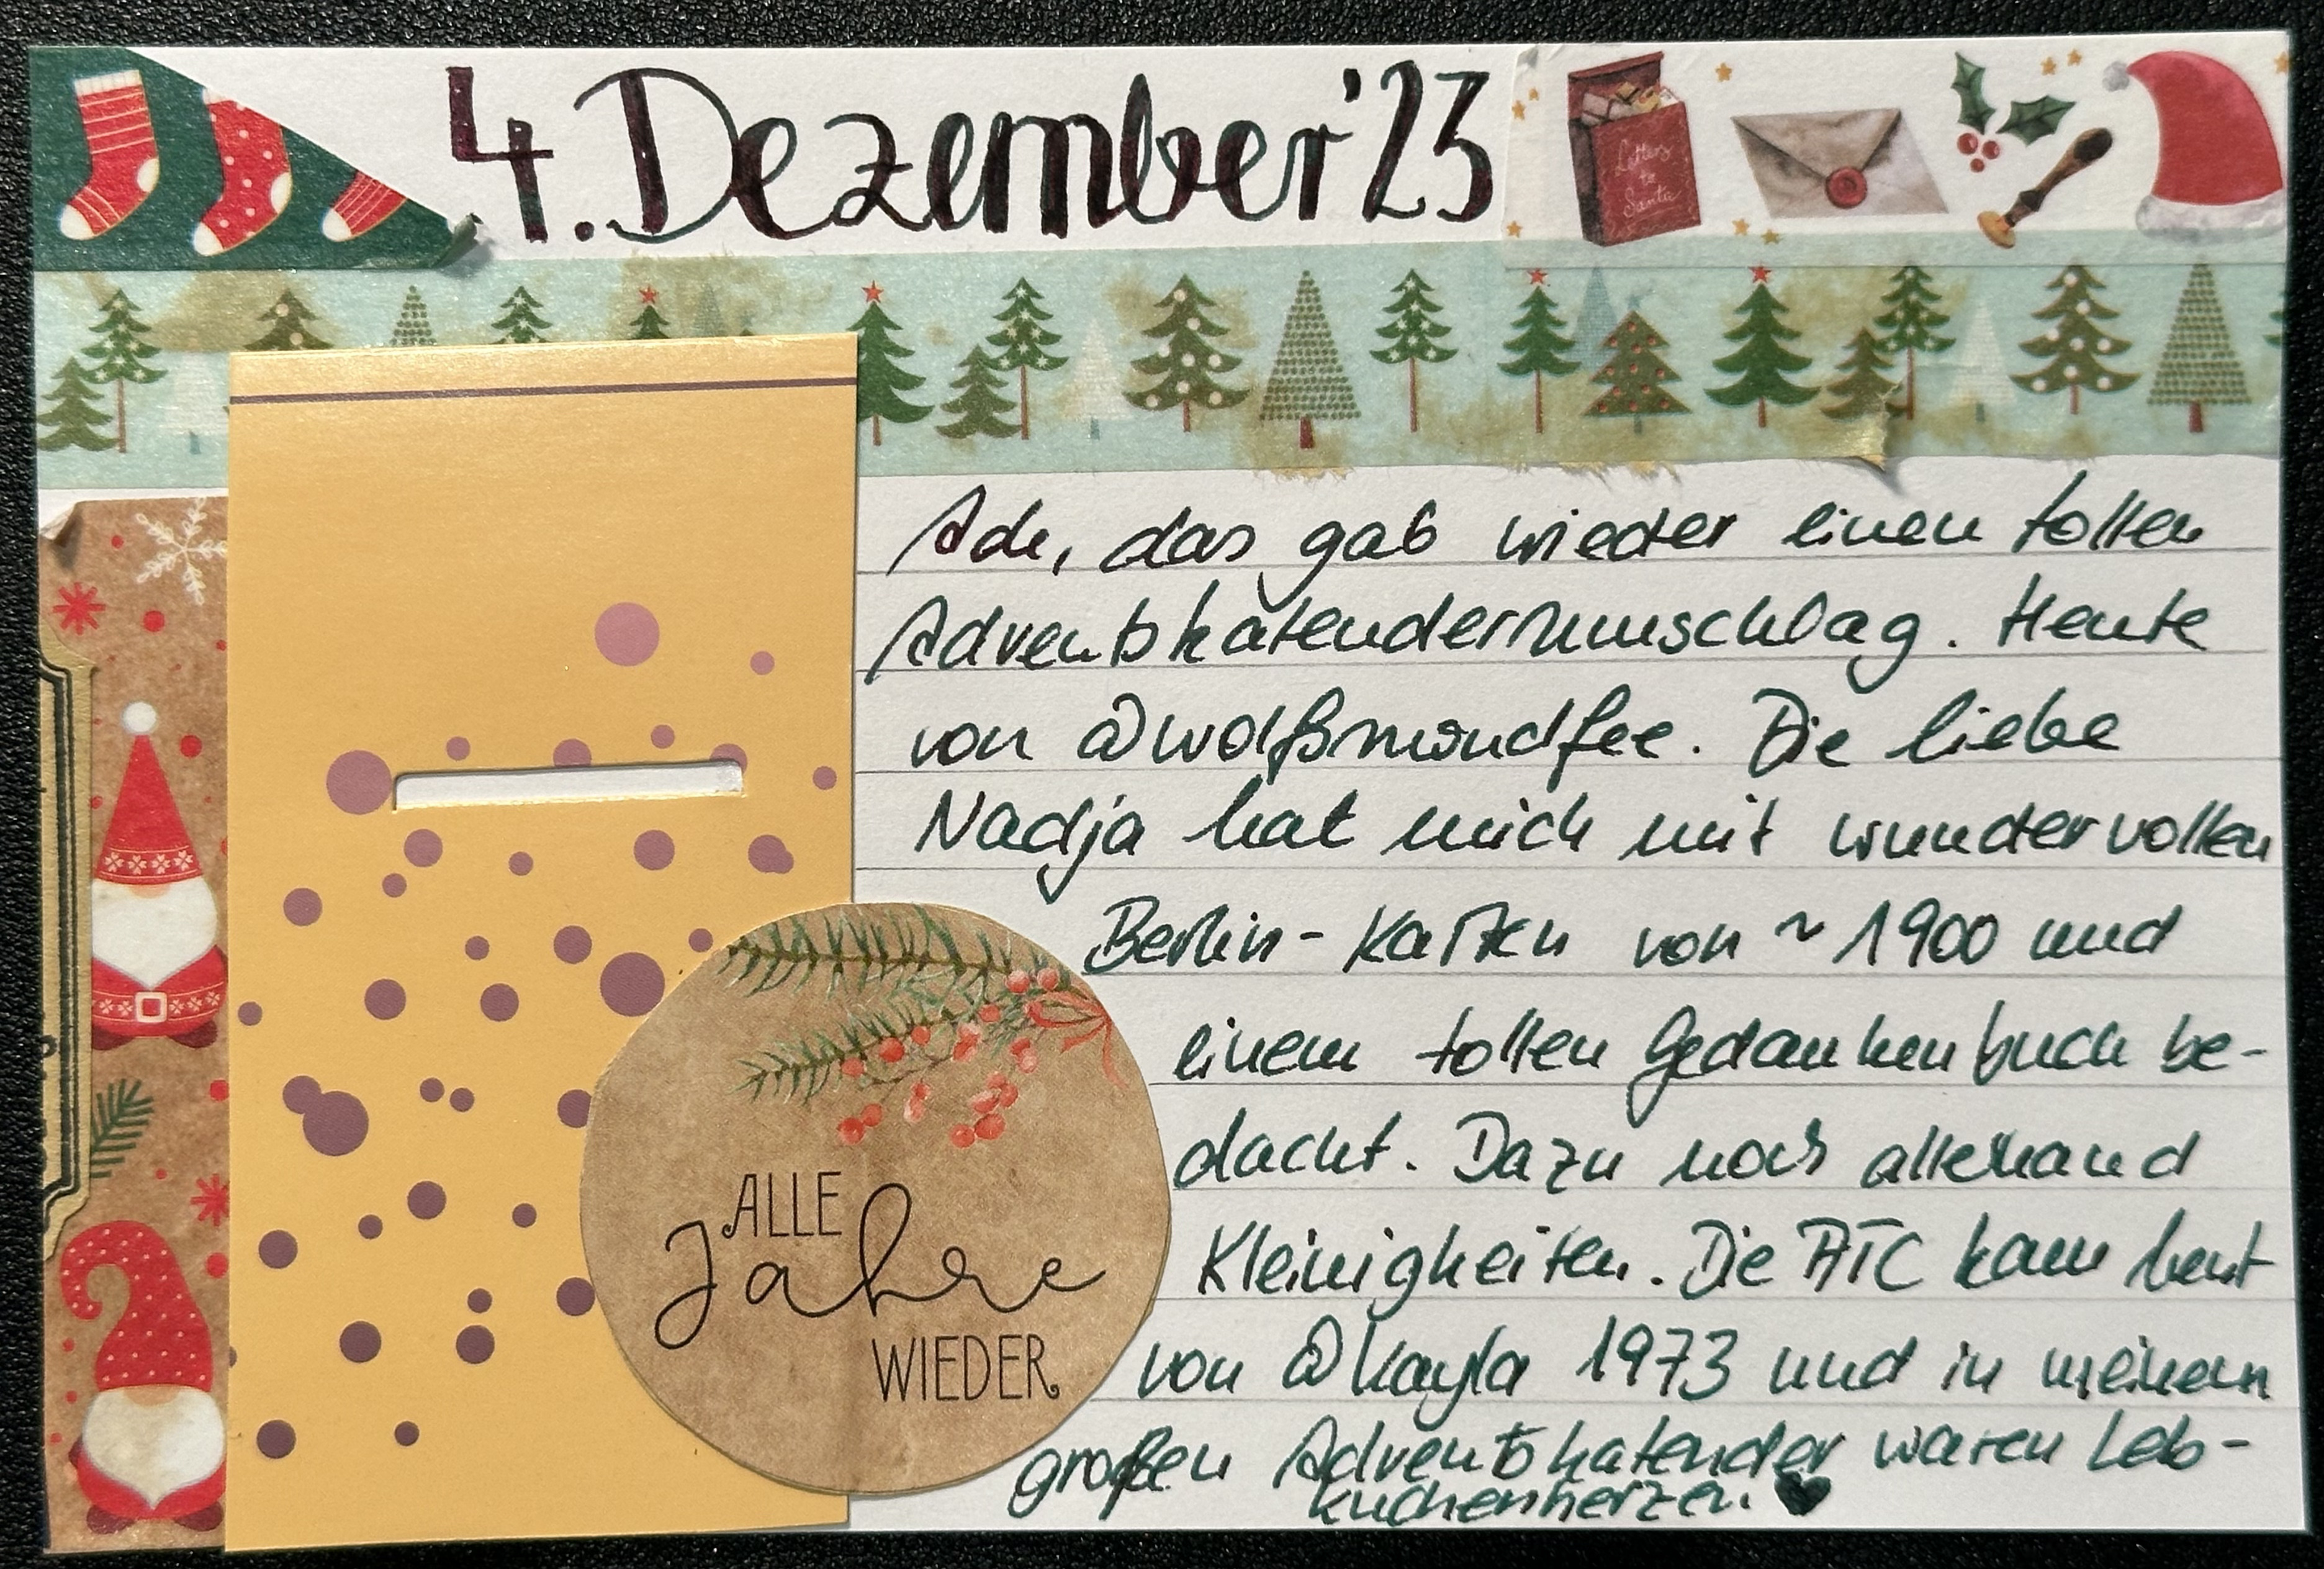 4. Dezember '23
Letters
to
Santa
Ach, das gab wieder einen tollen
Adventskalenderumschlag. Heute
von @wolfsmondfee. Die liebe
Nadja hat mich mit wundervollen
Berlin-Karten von ~1900 und
einem tollen Gedankenbuch be-
dacht. Dazu noch allerhand
Kleinigkeiten. Die ATC kam heut
von @kayla1973 und in meinem
großen Adventskalender waren Leb-
kuchenherzen. ♥
ALLE
Jahre
WIEDER